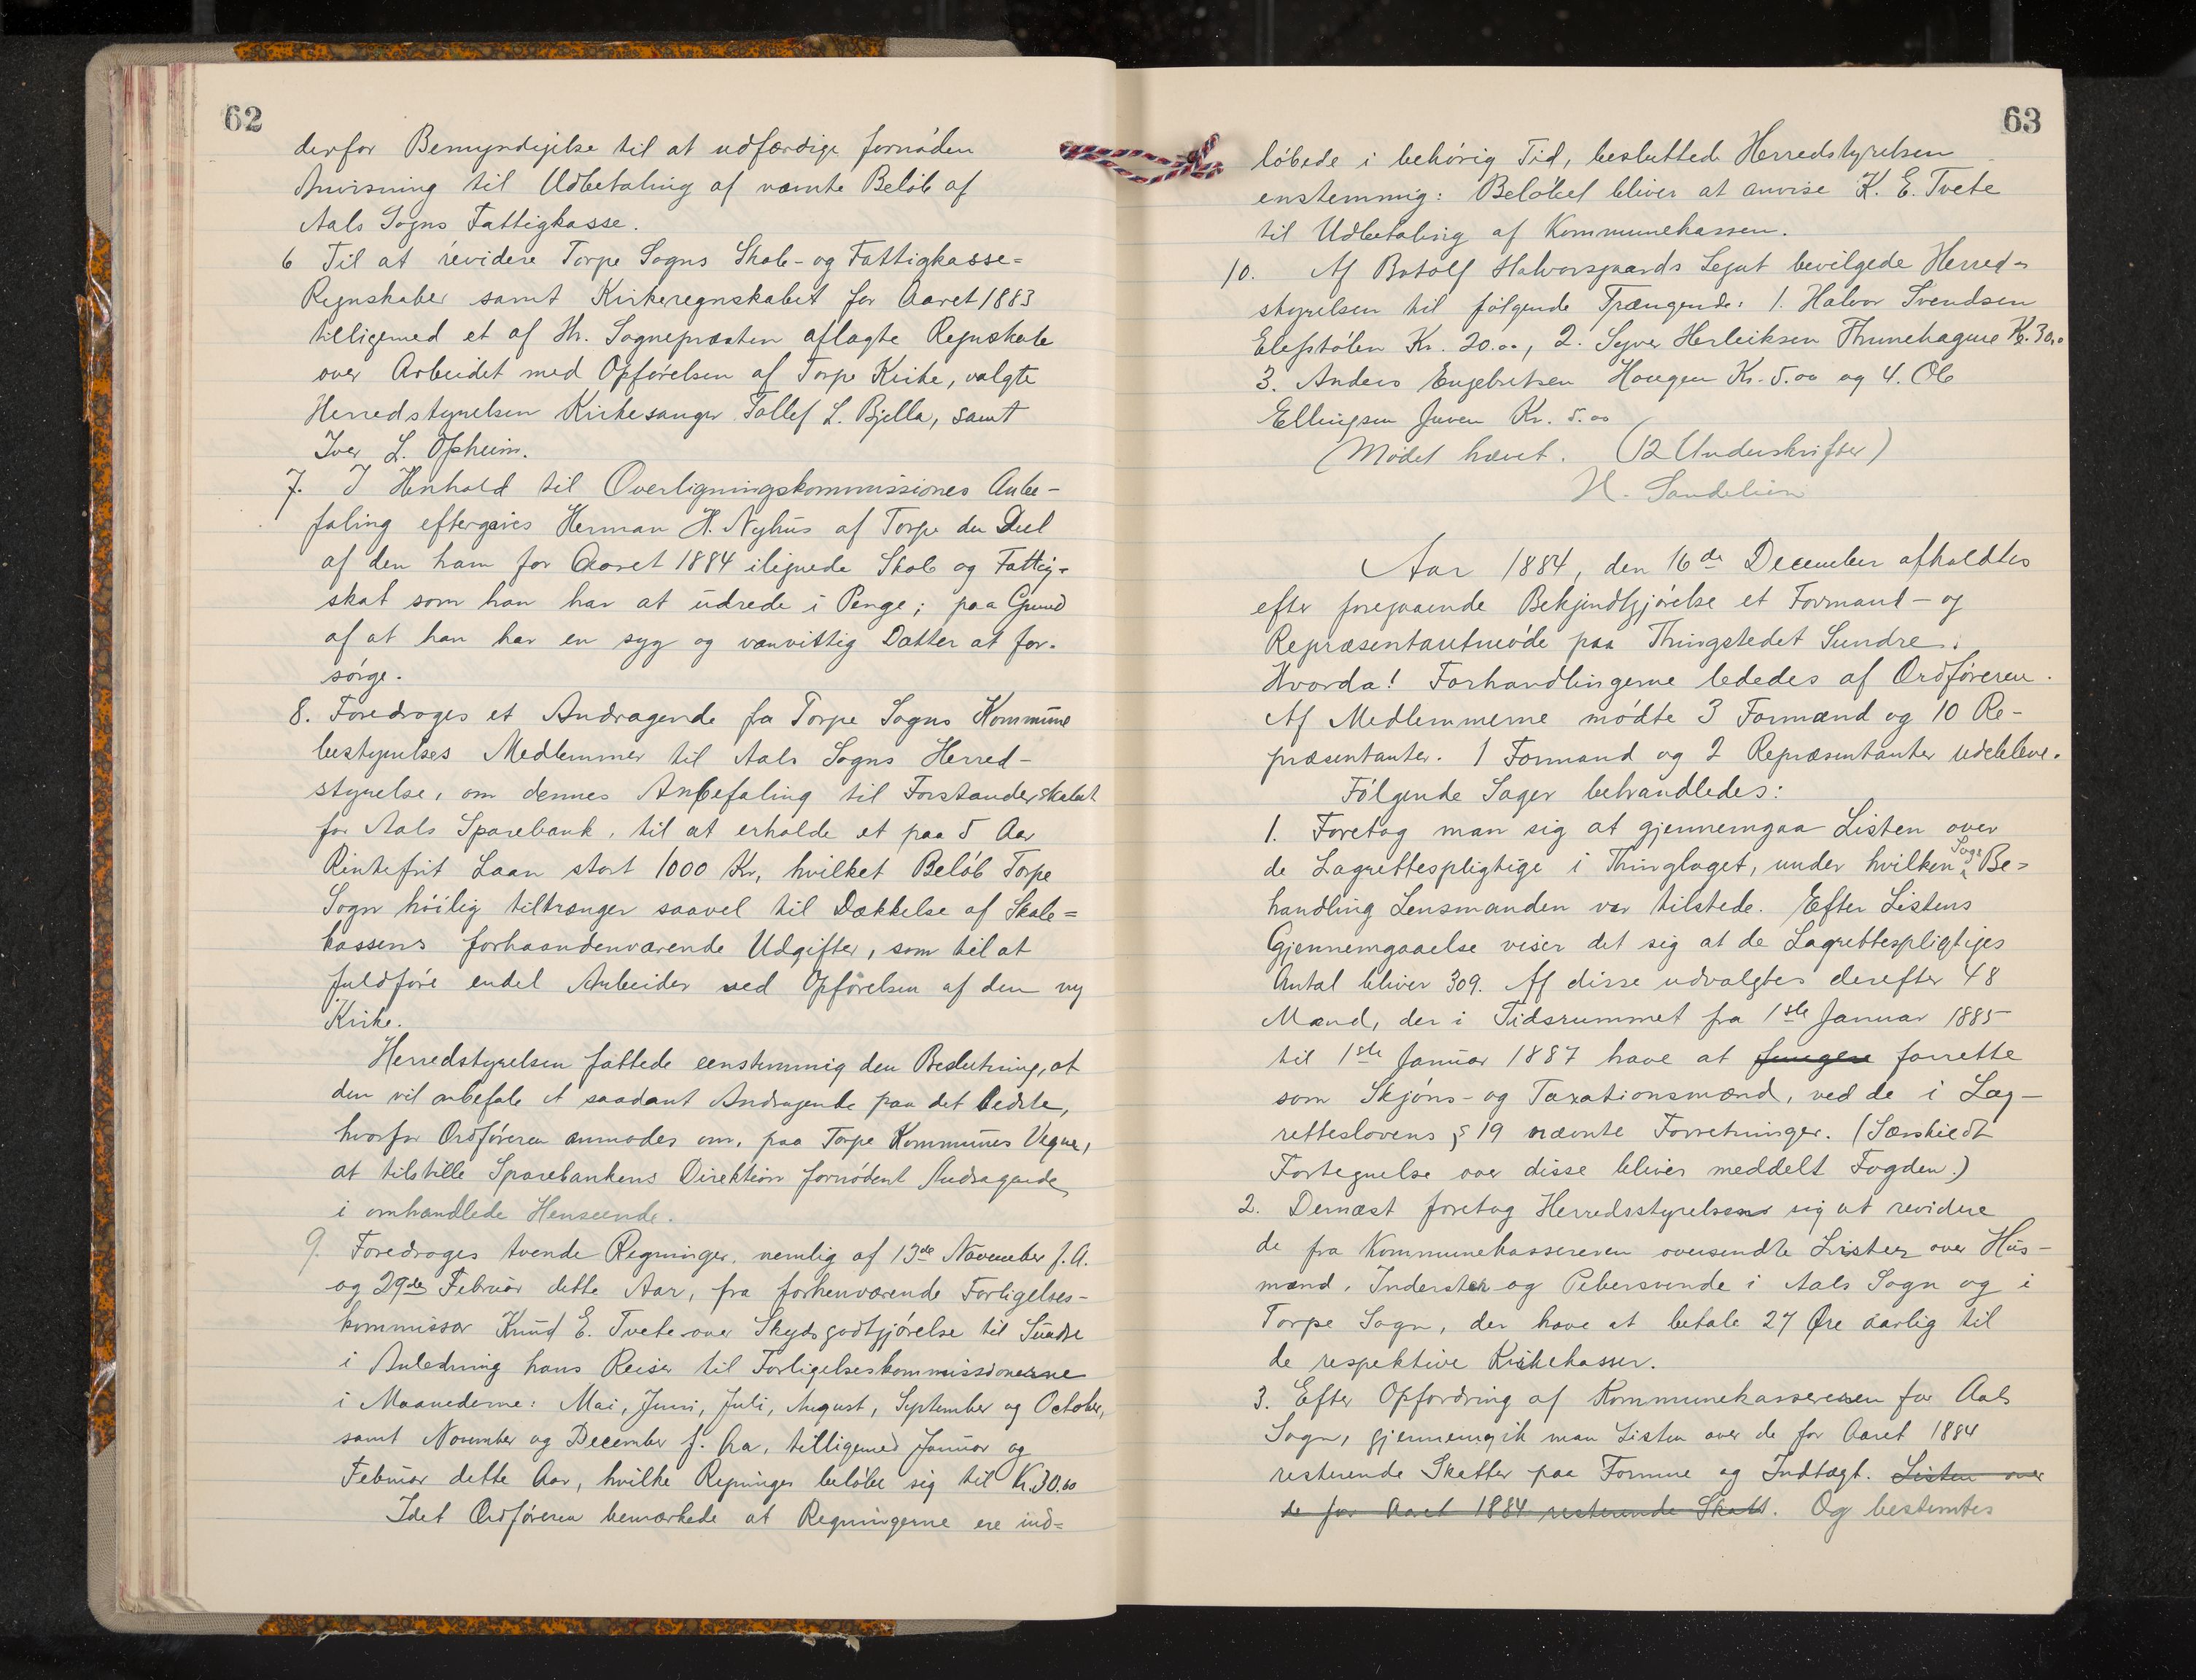 62
derfor Bemyndigelse til at udfærdige fornøden
Anvisning til Udbetaling af nævnte Beløb af
Aals Sogns Fattigkasse.
6 Til at revidere Torpe Sogns Skole- og Fattigkasse=
Regnskaber samt Kirkeregnskabet for Aaret 1883
tilligemed et af Hr. Sognepræsten aflagte Regnskab
over Arbeidet med Opførelsen af Torpe Kirke, valgte
Herredstyrelsen Kirkesanger Tollef L. Bjella, samt
Iver L. Opheim.
7. I Henhold til Overligningskommissiones Anbe-
faling eftergives Herman H. Nyhus af Torpe den Deel
af den ham for Aaret 1884 ilignede Skole og Fattig-
skat som han har at udrede i Penge; paa Grund
af at han har en syg og vanvittig Datter at for-
sørge.
8. Foredroges et Andragende fra Torpe Sogns Kommune
bestyrelses Medlemmer til Aals Sogns Herred-
styrelse, om dennes Anbefaling til Forstanderskabet
for Aals Sparebank, til at erholde et paa 5 Aar
Rentefrit Laan stort 1000 Kr, hvilket Beløb Torpe
Sogn høilig tiltrænger saavel til Dækkelse af Skole=
kassens forhaandenværende Udgifter, som til at
fuldføre endel Arbeider ved Opførelsen af den ny
Kirke.
Herredstyrelsen fattede eenstemmig den Beslutning, at
den vil anbefale et saadant Andragende paa det bedste,
hvorfor Ordføreren anmodes om, paa Torpe Kommunes Vegne,
at tilstille Sparebankens Direktion fornødent Andragende
i omhandlede Henseende.
9. Foredroges tvende Regninger, nemlig af 13de November f. A.
og 29de Februar dette Aar, fra forhenværende Forligelses-
kommissær Knud E. Tvete over Skydsgodtgjørelse til Sundre
i Anledning hans Reiser til Forligelseskommissionerne
i Maanederne: Mai, Juni, Juli, August, September og October,
samt November og December f. Aa, tilligemed Januar og
Februar dette Aar, hvilke Regninger beløbe sig til Kr. 30.60
Idet Ordføreren bemærkede at Regningerne ere ind=
63
løbede i behørig Tid, besluttede Herredstyrelsen
enstemmig: Beløbet bliver at anvise K. E. Tvete
til Udbetaling af Kommunekassen.
10. Af Botolf Halvorsgaards Legat bevilgede Herred-
styrelsen til følgende Trængende: 1. Halvor Svendsen
Elefstølen Kr. 20.00, 2. Syver Herleiksen Thunehagene Kr. 30,00
3. Anders Engebretsen Haugen Kr. 5.00 og 4. Ole
Ellingsen Juven Kr. 5.00
Mødet hævet. (12 Underskrifter)
H. Sandelien
Aar 1884, den 16de December afholdtes
efter foregaaende Bekjendtgjørelse et Formand- og
Repræsentantmøde paa Thingstedet Sundre.
Hvorda! Forhandlingerne lededes af Ordføreren.
Af Medlemmerne mødte 3 Formænd og 10 Re-
præsentanter. 1 Formand og 2 Repræsentanter udebleve.
Følgende Sager behandledes:
1. Foretog man sig at gjennemgaa Listen over
de Lagrettespligtige i Thinglaget, under hvilken Sags Be=
handling Lensmanden var tilstede. Efter Listens
Gjennemgaaelse viser det sig at de Lagrettespligtiges
Antal bliver 309. Af disse udvalgtes derefter 48
Mænd, der i Tidsrummet fra 1ste Januar 1885
til 1ste Januar 1887 have at fungere forrette
som Skjøns- og Taxationsmænd, ved de i Lag-
retteslovens § 19 nævnte Forretninger. (Særskiedt
Fortegnelse over disse bliver meddelt Fogden.)
2. Dernæst foretog Herredsstyrelsens sig at revidere
de fra Kommunekassereren oversendte Lister over Hus-
mænd, Inderster og Pebersvende i Aals Sogn og i
Torpe Sogn, der have at betale 27 Øre aarlig til
de respektive Kirkekasser.
3. Efter Opfordring af Kommunekassereren for Aals
Sogn, gjennemgik man Listen over de for Aaret 1884
resterende Skatter paa Formue og Indtægt. Listen over
de for Aaret 1884 resterende Skatt. Og bestemtes